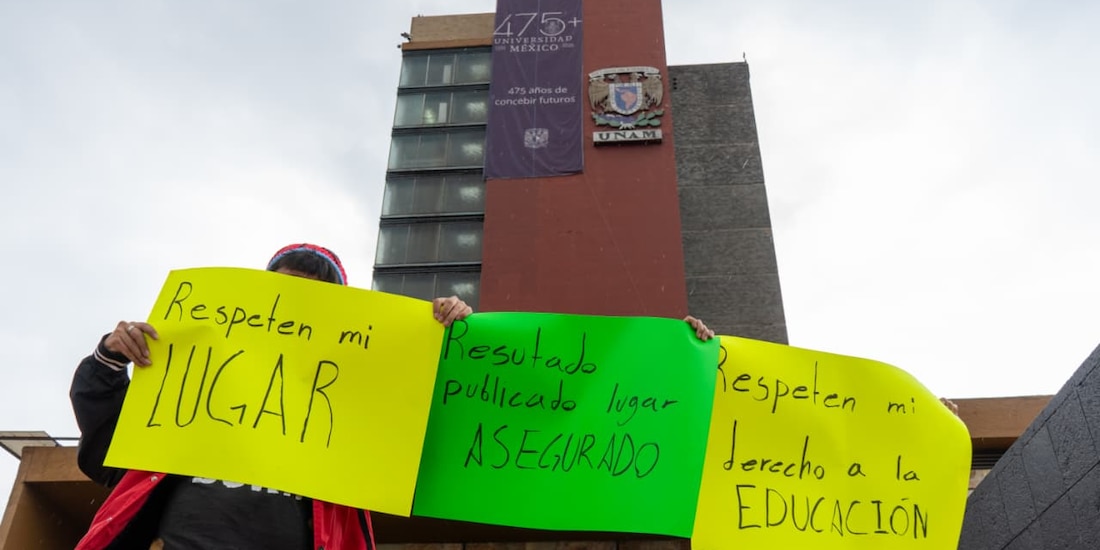 475+
UNIVERSIDAD
MÉXICO
475 años de
concebir futuros
UNAM
Respeten mi
LUGAR
Resutado
publicado lugar
ASEGURADO
Respeten mi
derecho a la
EDUCACIÓN